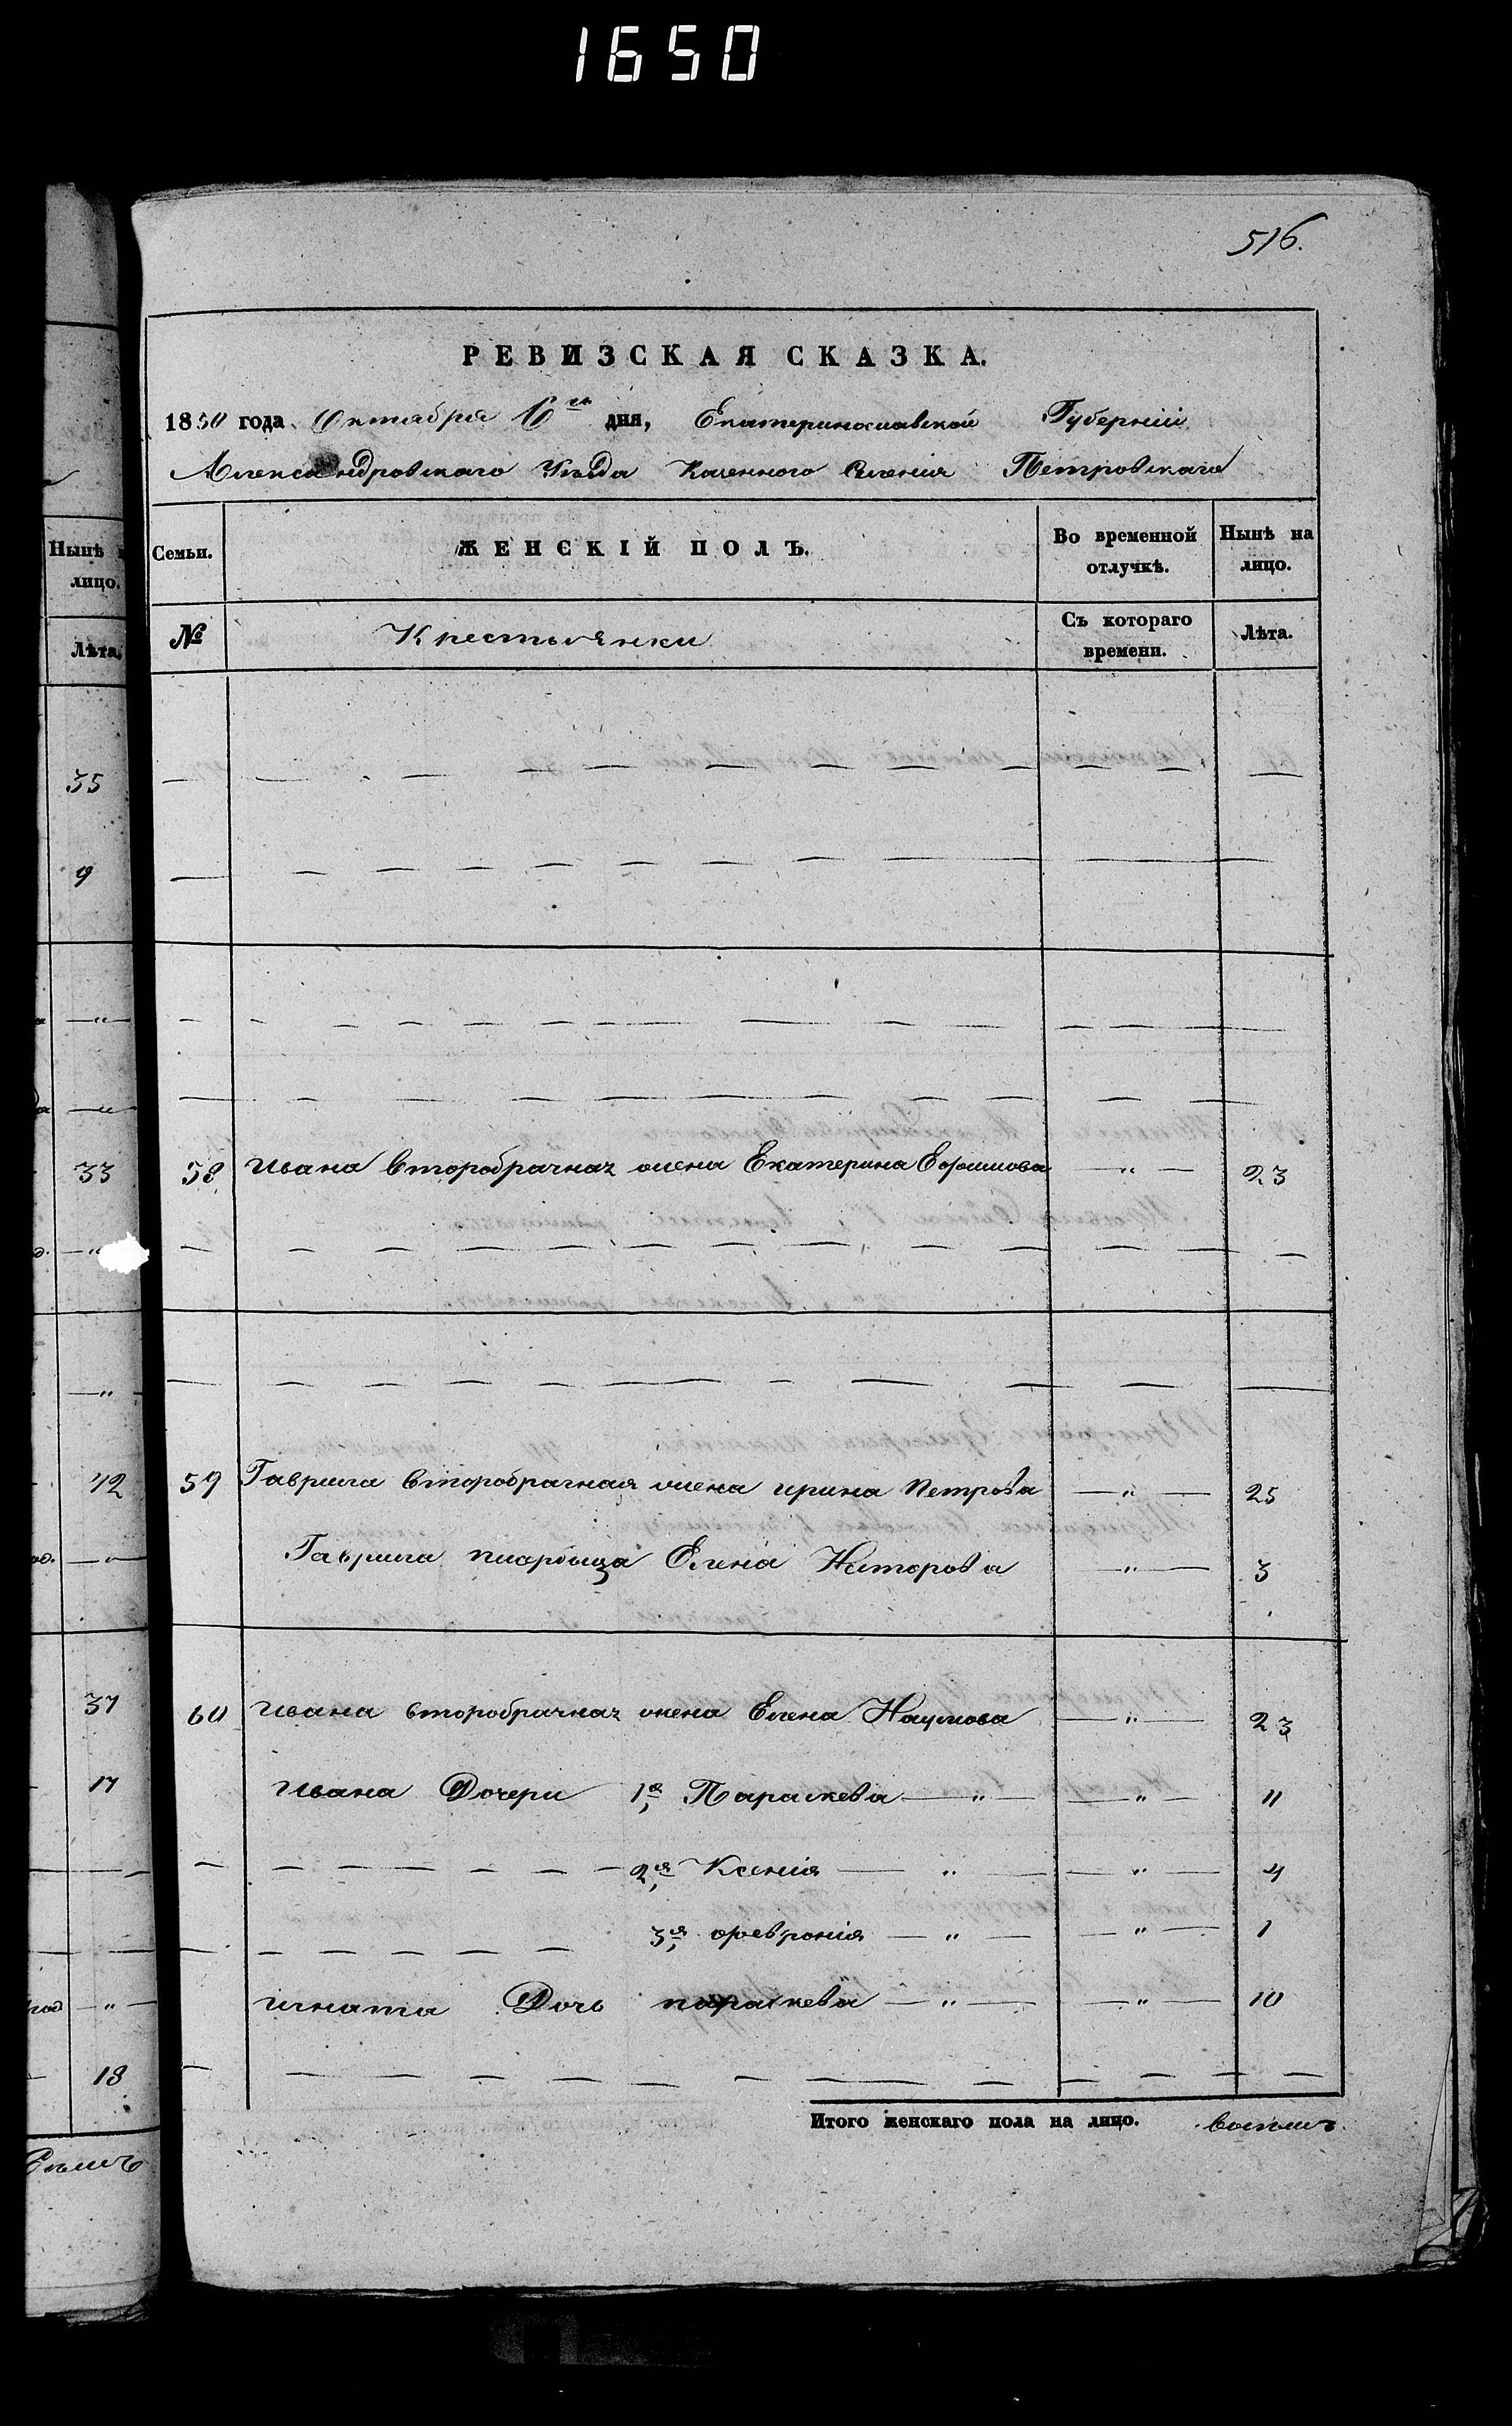 1650
516.
РЕВИЗСКАЯ СКАЗКА.
1850 года Октября 16го дня, Екатеринославской Губерніи
Александровскаго Уѣзда Казенного Селенія Петровскаго
Нынѣ
лицо.
Лѣта.
Семьи.
ЖЕНСКІЙ ПОЛЪ.
Во временной отлучкѣ.
Нынѣ на лицо.
№
Крестьянки
Съ котораго времени.
Лѣта.
35
9
33
58 Ивана второбрачная жена Екатерина Ефимова — " — 23
42
59 Гаврила второбрачная жена ирина Петрова — " — 25
Гаврила Елена Несторова — " — 3
37
60 Ивана второбрачная жена Елена Наумова — " — 23
17
Ивана Дочери 1я Параскева — " — — " — 11
2я Ксенія — " — — " — 4
3я февронія — " — — " — 1
игната Дочь параскева — " — — " — 10
18
Итого женскаго пола на лицо. восемь